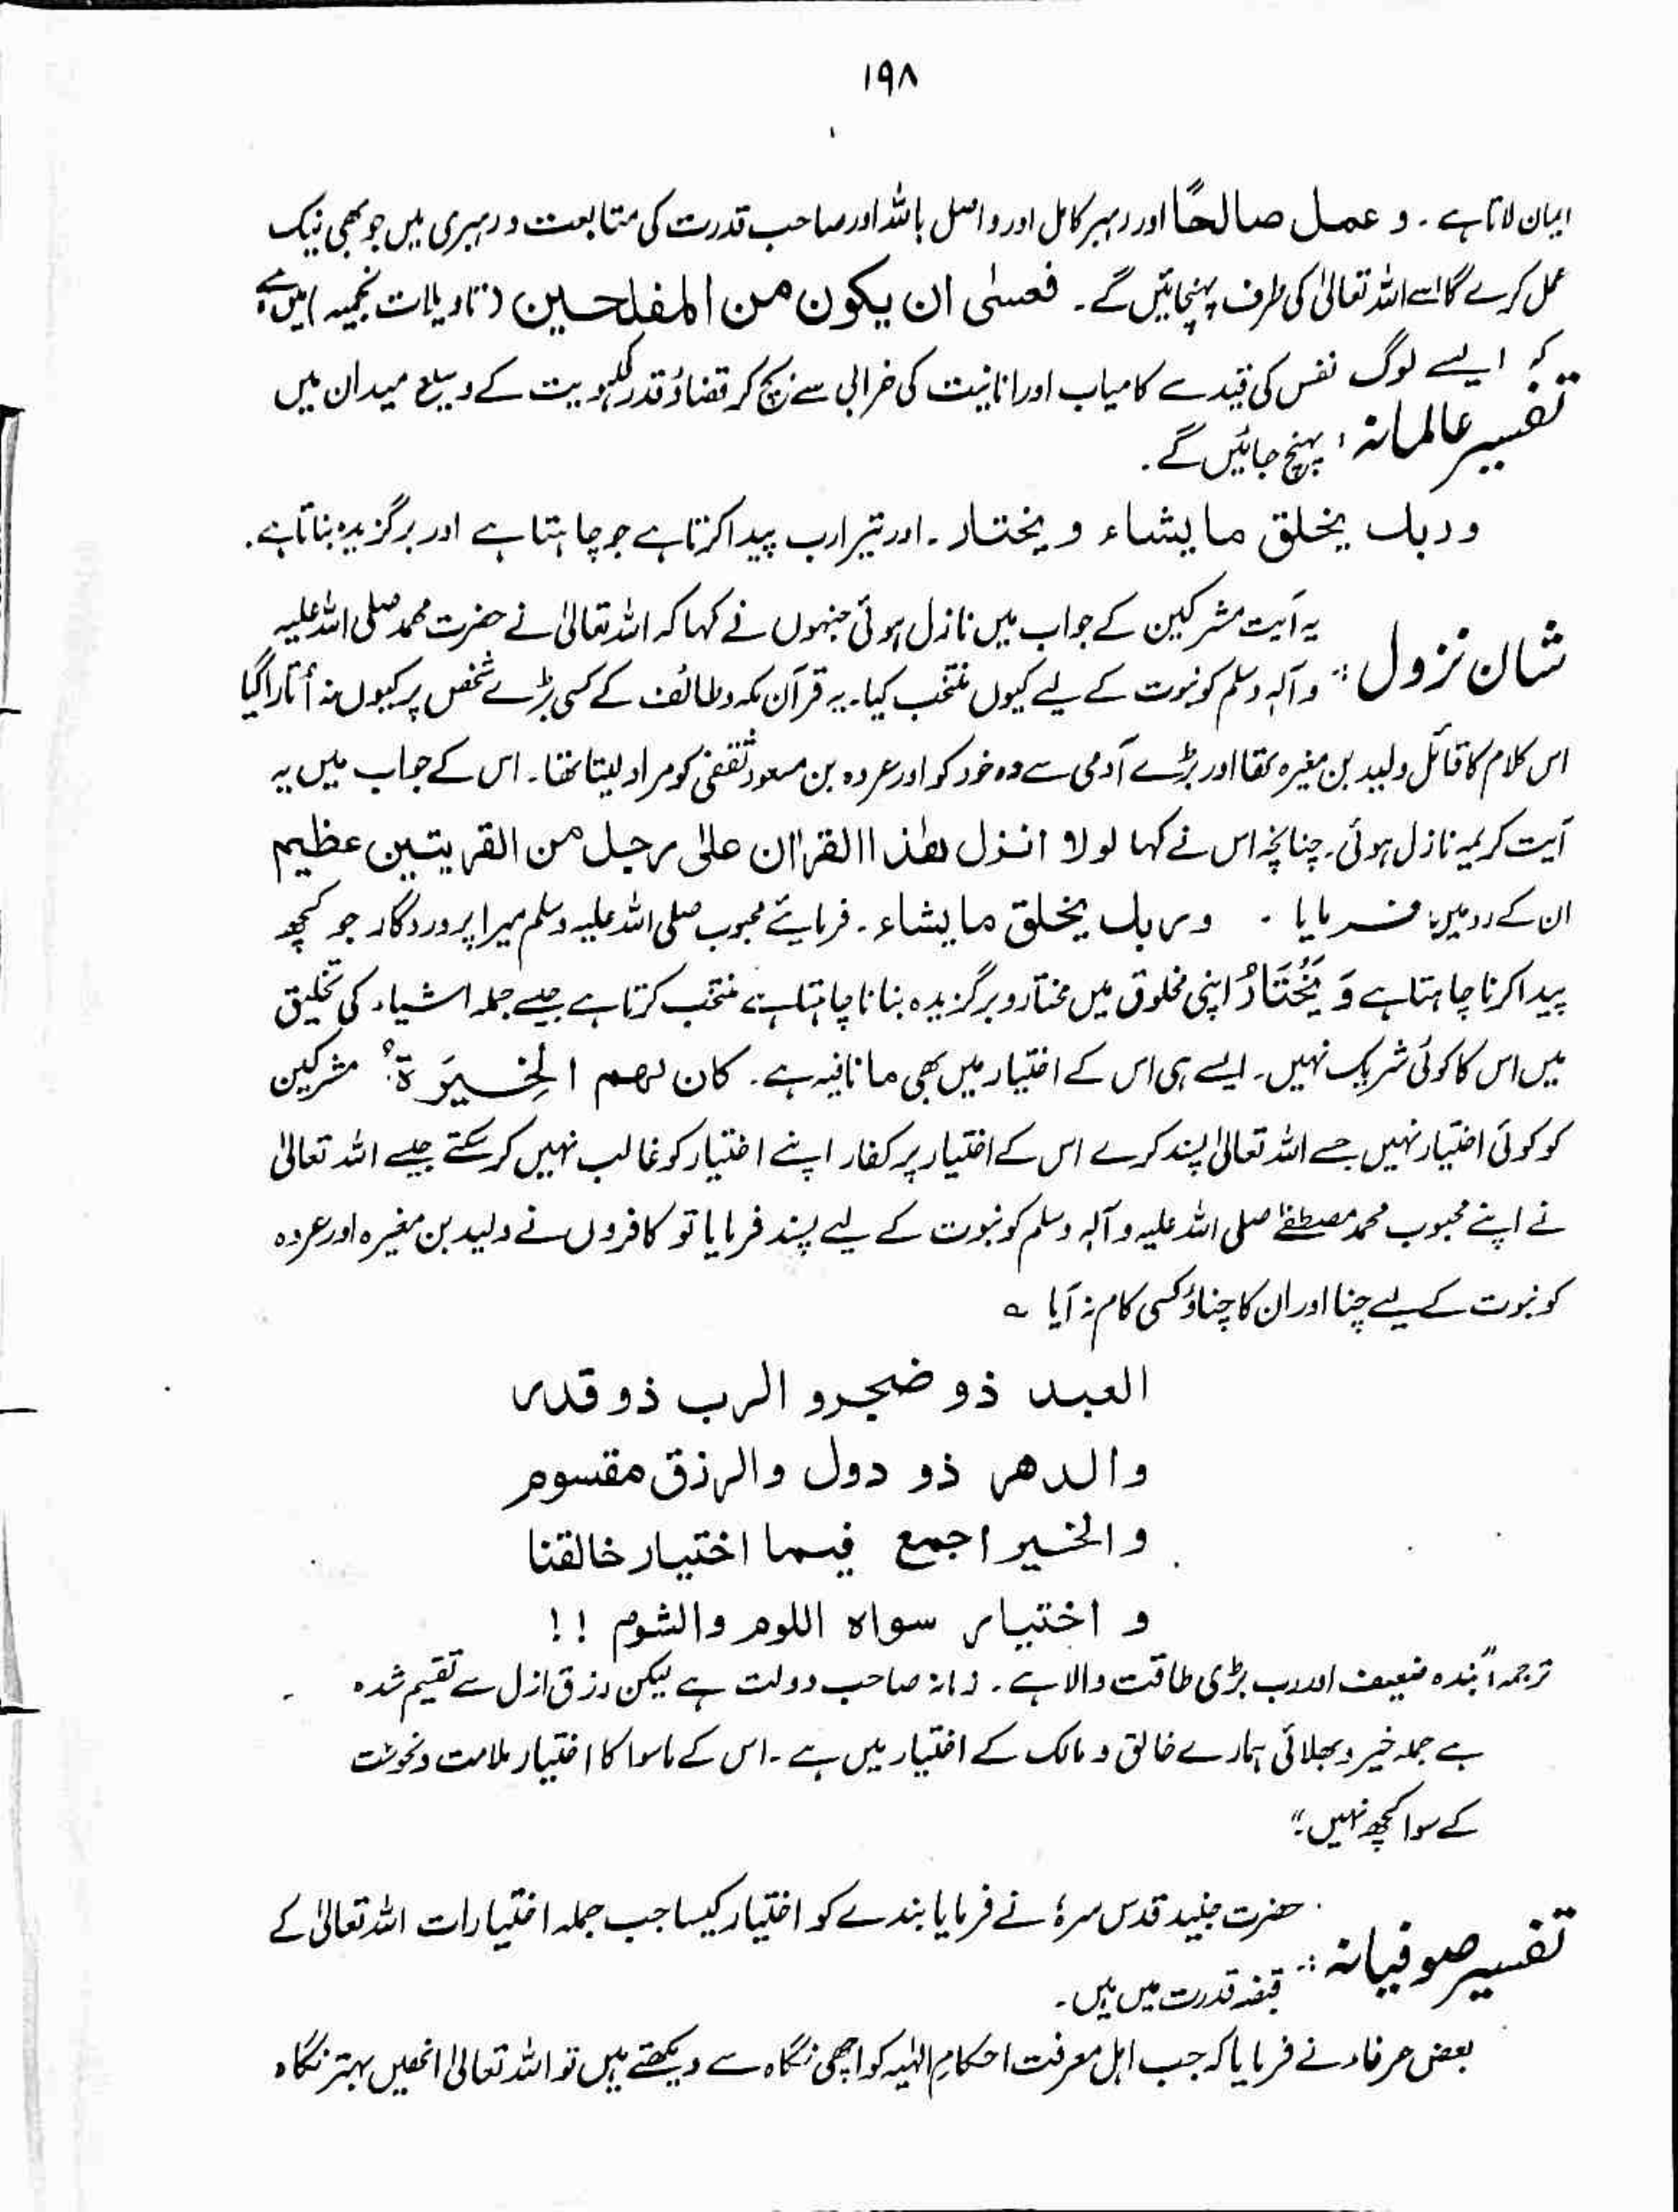 ۱۹۸
ایمان لاتا ہے ۔ و عمل صالحًا اور رہبر کامل اور واصل باللہ اور صاحب قدرت کی متابعت و رہبری میں جو بھی نیک
عمل کرے گا اسے اللہ تعالیٰ کی طرف پہنچائیں گے ۔ فعسٰی ان یکون من المفلحین ( تاویلات نجمیہ ) میں ہے
کہ ایسے لوگ نفس کی قید سے کامیاب اور انانیت کی خرابی سے بچ کر قضاؤ قدر کے وسیع میدان میں
تفسیر عالمانہ : پہنچ جائیں گے ۔
وربک یخلق ما یشاء و یختار ۔ اور تیرا رب پیدا کرتا ہے جو چاہتا ہے اور برگزیدہ بناتا ہے ۔
یہ آیت مشرکین کے جواب میں نازل ہوئی جنہوں نے کہا کہ اللہ تعالیٰ نے حضرت محمد صلی اللہ علیہ
شان نزول :- و آلہ وسلم کو نبوت کے لیے کیوں منتخب کیا ۔ یہ قرآن مکہ و طائف کے کسی بڑے شخص پر کیوں نہ اُتارا گیا
اس کلام کا قائل ولید بن مغیرہ تھا اور بڑے آدمی سے وہ خود کو اور عروہ بن مسعود ثقفی کو مراد لیتا تھا ۔ اس کے جواب میں یہ
آیت کریمہ نازل ہوئی ۔ چنانچہ اس نے کہا لولا انزل ھٰذا القراٰن علٰی رجل من القریتین عظیم
ان کے رد میں فرمایا ۔ وربک یخلق ما یشاء ۔ فرمائیے محبوب صلی اللہ علیہ وسلم میرا پروردگار جو کچھ
پیدا کرنا چاہتا ہے وَ یَخْتَارُ اپنی مخلوق میں مختار و برگزیدہ بنانا چاہتا ہے منتخب کرتا ہے جیسے جملہ اشیاء کی تخلیق
میں اس کا کوئی شریک نہیں ۔ ایسے ہی اس کے اختیار میں بھی ما نافیہ ہے ۔ کان لھم الخِیَرَۃُ مشرکین
کو کوئی اختیار نہیں جسے اللہ تعالیٰ پسند کرے اس کے اختیار پر کفار اپنے اختیار کو غالب نہیں کر سکتے جیسے اللہ تعالیٰ
نے اپنے محبوب محمد مصطفےٰ صلی اللہ علیہ و آلہ وسلم کو نبوت کے لیے پسند فرمایا تو کافروں نے ولید بن مغیرہ اور عروہ
کو نبوت کے لیے چنا اور ان کا چناؤ کسی کام نہ آیا ؎
العبد ذو ضجر و الرب ذو قدر
والدھر ذو دول والرزق مقسوم
والخیر اجمع فیما اختیار خالقنا
و اختیار سواہ اللوم والشوم !!
ترجمہ "بندہ ضعیف اور رب بڑی طاقت والا ہے ۔ زمانہ صاحب دولت ہے لیکن رزق ازل سے تقسیم شدہ
ہے جملہ خیر و بھلائی ہمارے خالق و مالک کے اختیار میں ہے ۔ اس کے ماسوا کا اختیار ملامت و نحوست
کے سوا کچھ نہیں ۔"
حضرت جنید قدس سرہٗ نے فرمایا بندے کو اختیار کیسا جب جملہ اختیارات اللہ تعالیٰ کے
تفسیر صوفیانہ :- قبضہ قدرت میں ہیں ۔
بعض عرفاء نے فرمایا کہ جب اہل معرفت احکامِ الٰہیہ کو اچھی نگاہ سے دیکھتے ہیں تو اللہ تعالیٰ انھیں بہتر نگاہ